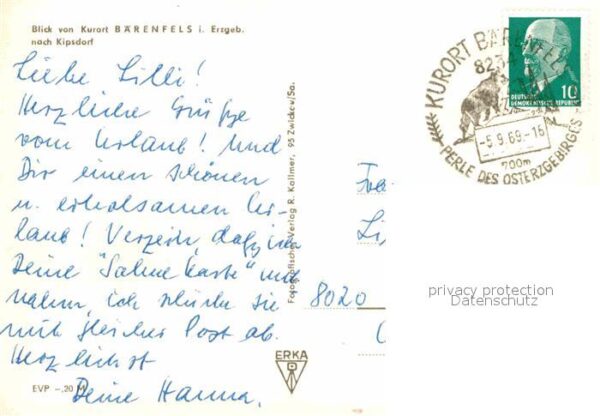 Blick von Kurort BÄRENFELS i. Erzgeb.
nach Kipsdorf
Liebe Lilli!
Herzliche Grüße
vom Urlaub! Und
Dir einen schönen
u. erholsamen Ur-
laub! Verzeih, daß ich
Deine "Sahne karte" mit
nahm, ich schicke sie
mit gleicher Post ab.
Herzlichst
Deine Hanna.
EVP -,20 M
Fotografischer Verlag R. Kallmer, 95 Zwickau/Sa.
ERKA
8020
KURORT BÄRENFELS
8234
-5.9.69.-16
700m
PERLE DES OSTERZGEBIRGES
DEUTSCHE
DEMOKRATISCHE REPUBLIK
10
privacy protection
Datenschutz